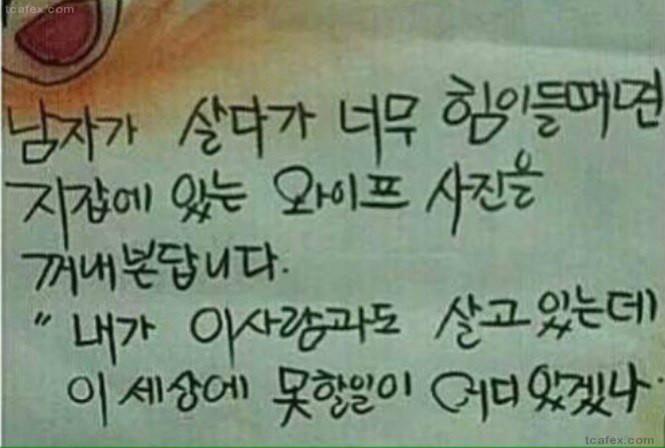 tcafex.com
남자가 살다가 너무 힘이들때면
지갑에 있는 와이프 사진을
꺼내본답니다.
" 내가 이사람과도 살고 있는데
이 세상에 못할일이 어디 있겠나.
tcafex.com